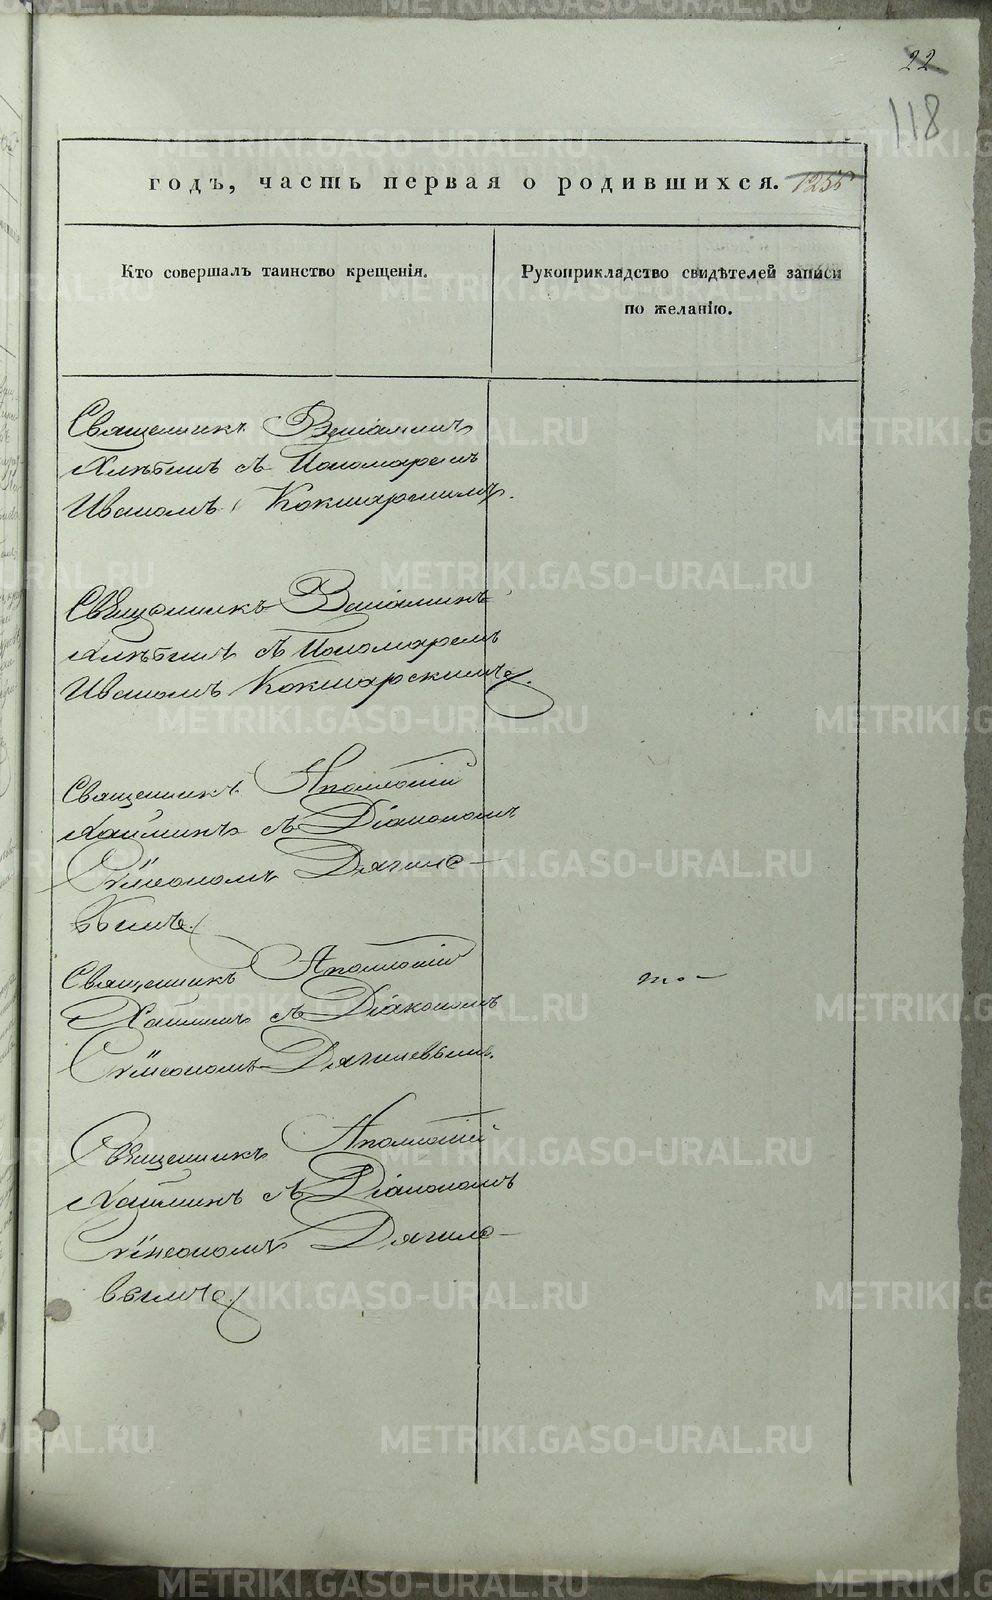 22
118
годъ, часть первая о родившихся. 1255
Кто совершалъ таинство крещенія.
Рукоприкладство свидѣтелей записи
по желанію.
Священникъ Веніаминъ
Хлѣбинъ съ Пономаремъ
Иваномъ Кокшарскимъ.
Священникъ Веніаминъ
Хлѣбинъ съ Пономаремъ
Иваномъ Кокшарскимъ.
Священникъ Аполлоній
съ Діакономъ
Сѵмеономъ Дягиле-
вымъ.
Священникъ Аполлоній
съ Діакономъ
Сѵмеономъ Дягилевымъ.
Священникъ Аполлоній
съ Діакономъ
Сѵмеономъ Дягиле-
вымъ.
METRIKI.GASO-URAL.RU